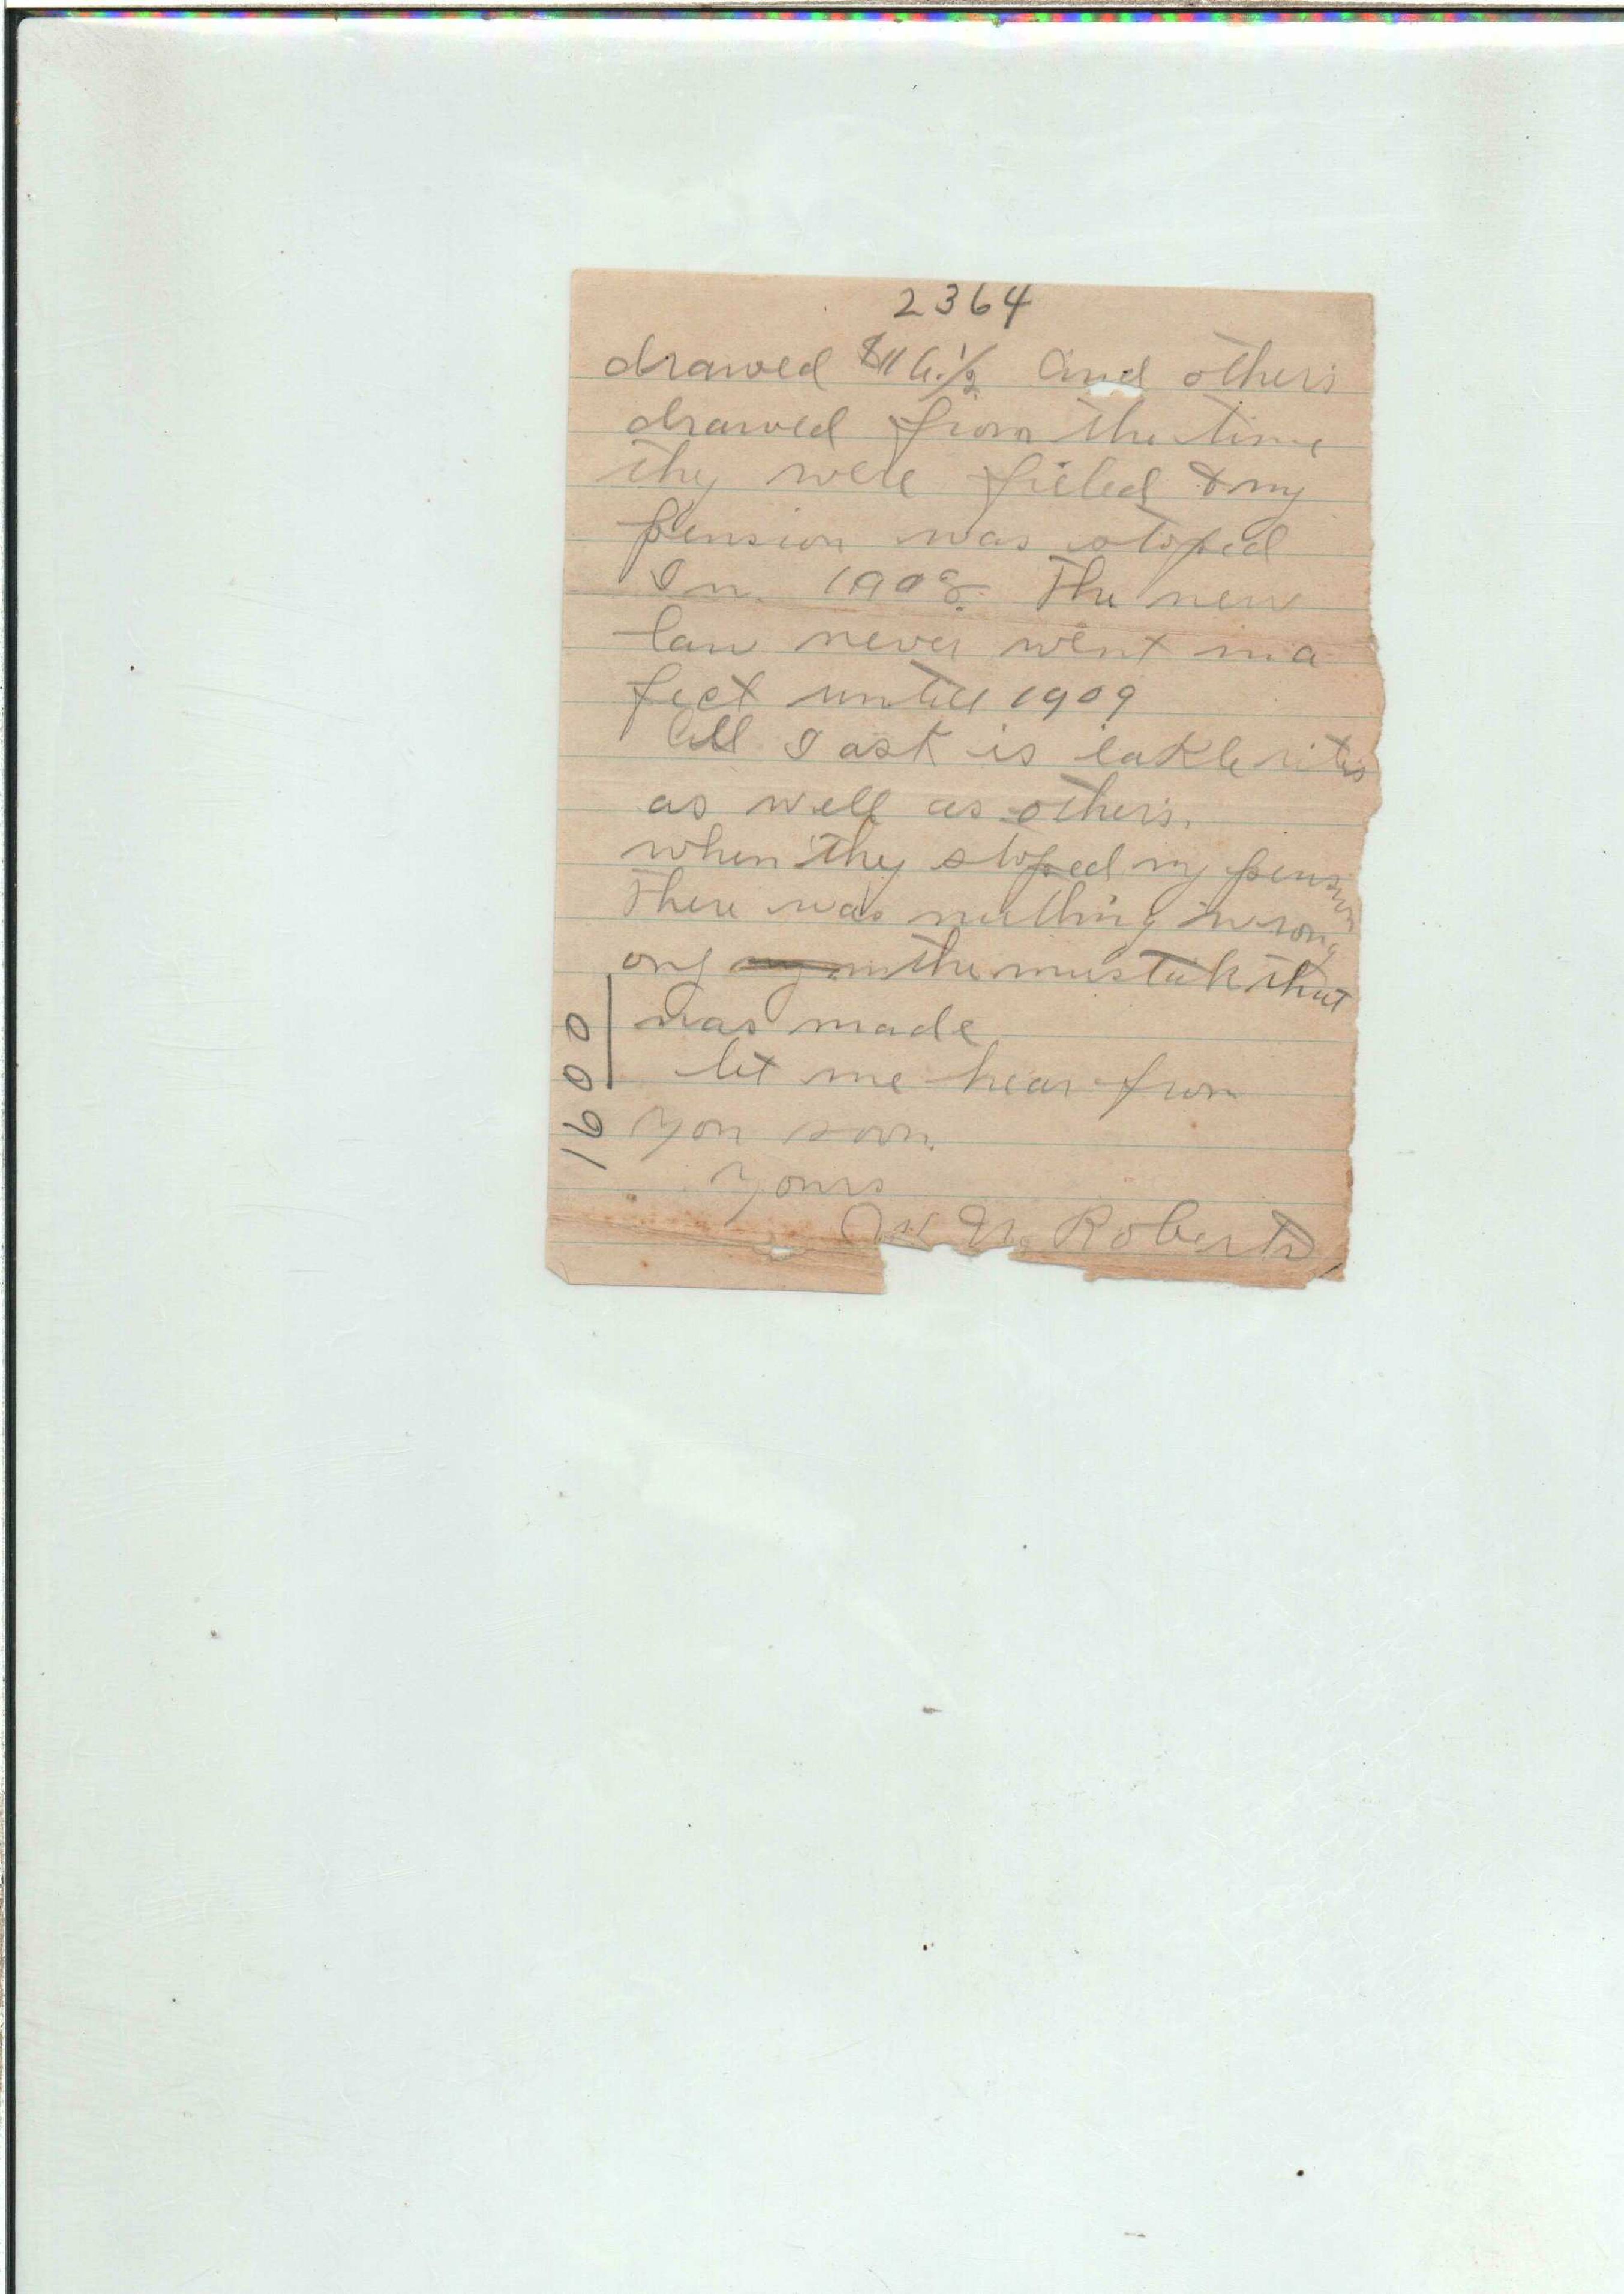 2364
drawed $116.½ and others
drawed from the time
they were fieled & my
pension was stoped
In. 1908. The new
law never went in a
fect untill 1909
all I ask is eakle rites
as well as others.
when they stoped my pension
There was nuthing wrong
only in the mustak that
was made
let me hear from
you soon.
yours
Roberts
1600